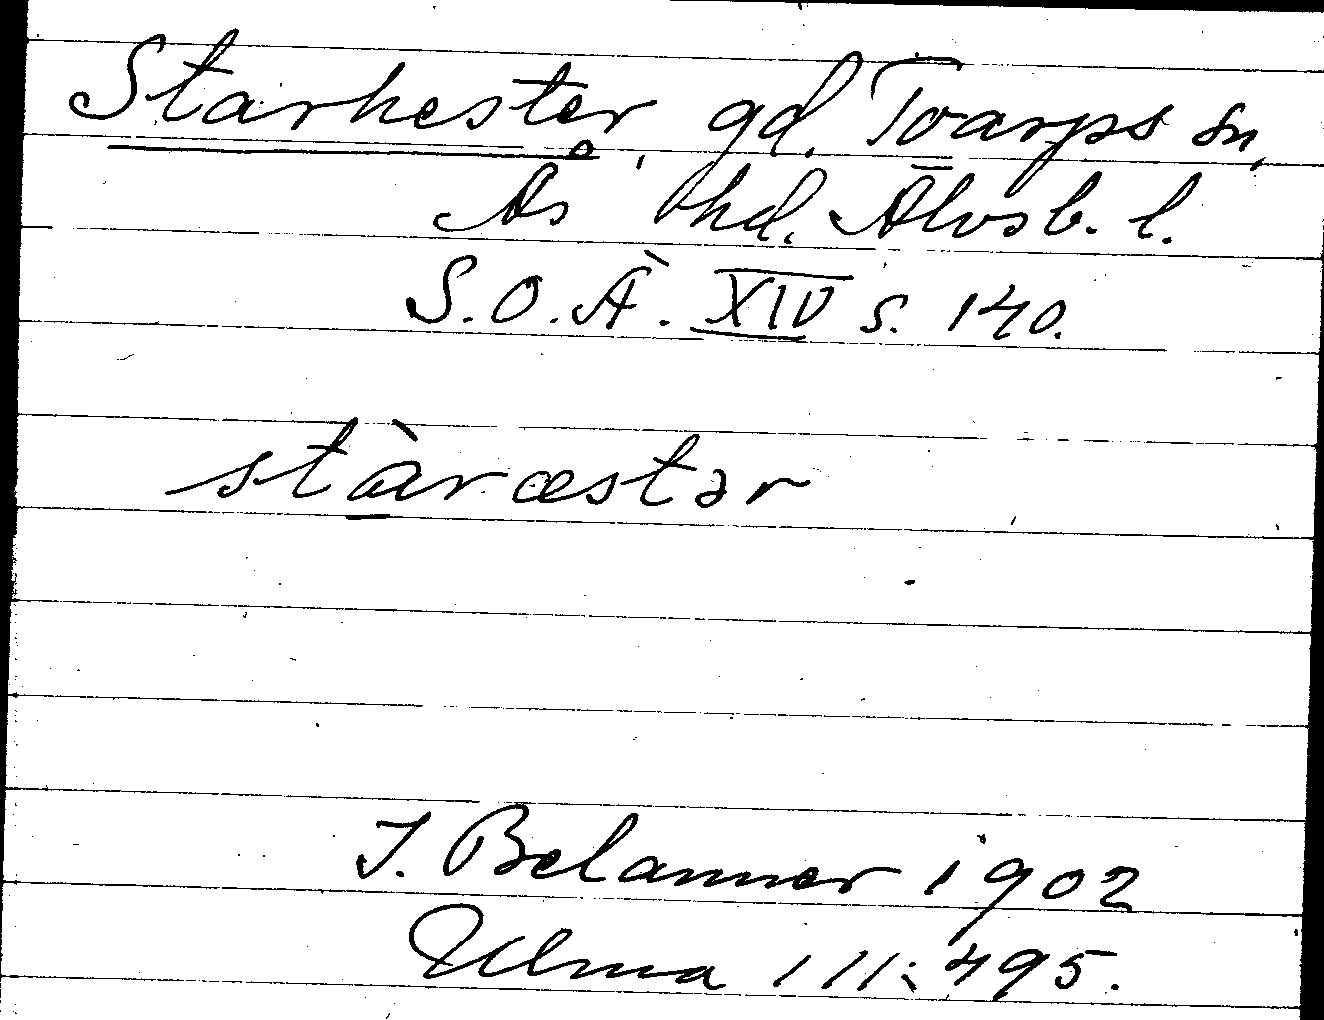 Starhester, gd. Toarps sn,
Ås hd. Älvsb. l.
S.O.Ä. XIV s. 140.
stàræstər
J. Belanner 1902
Ulma 111:495.